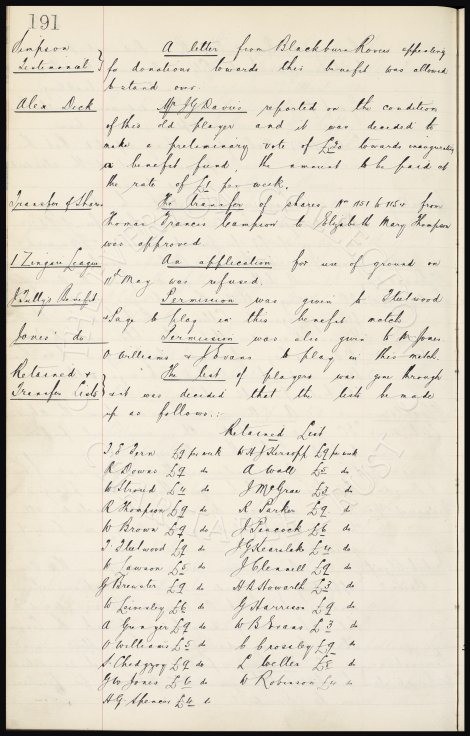 191
Simpson Testimonial } A letter from Blackburn Rovers appealing
for donations towards this benefit was allowed
to stand over.
Alex Dick Mr J G Davies reported on the condition
of this old player and it was decided to
make a preliminary vote of £20 towards inaugurating
a benefit fund, the amount to be paid at
the rate of £1 per week.
Transfer of Shares The transfer of shares Nos 1151 to 1154 from
Thomas Francis to Elizabeth Mary Thompson
was approved.
I Zingari League An application for use of ground on
11th May was refused.
J Tully's Benefit Permission was given to Fleetwood
& Page to play in this benefit match.
Jones do Permission was also given to Mr Jones
O Williams & J Evans to play in this match.
Retained & Transfer Lists } The list of players was gone through
& it was decided that the lists be made
up as follows:
Retained List
T E Fern £9 per week W A J £9 per week
R Downs £9 do A Wall £5 do
W Stroud £4 do J McGrae £3 do
R Thompson £9 do R Parker £9 do
W Brown £9 do J Peacock £6 do
T Fleetwood £9 do J G Kearslake £4 do
W Lawson £5 do J Clennell £9 do
G Brewster £9 do H A Howarth £3 do
W Leivesley £6 do G Harrison £9 do
A £9 do W B Evans £3 do
O Williams £5 do C Crossley £9 do
S Chedgzoy £9 do L Weller £8 do
G W Jones £4 do W Robinson £4 do
H G Spencer £4 do